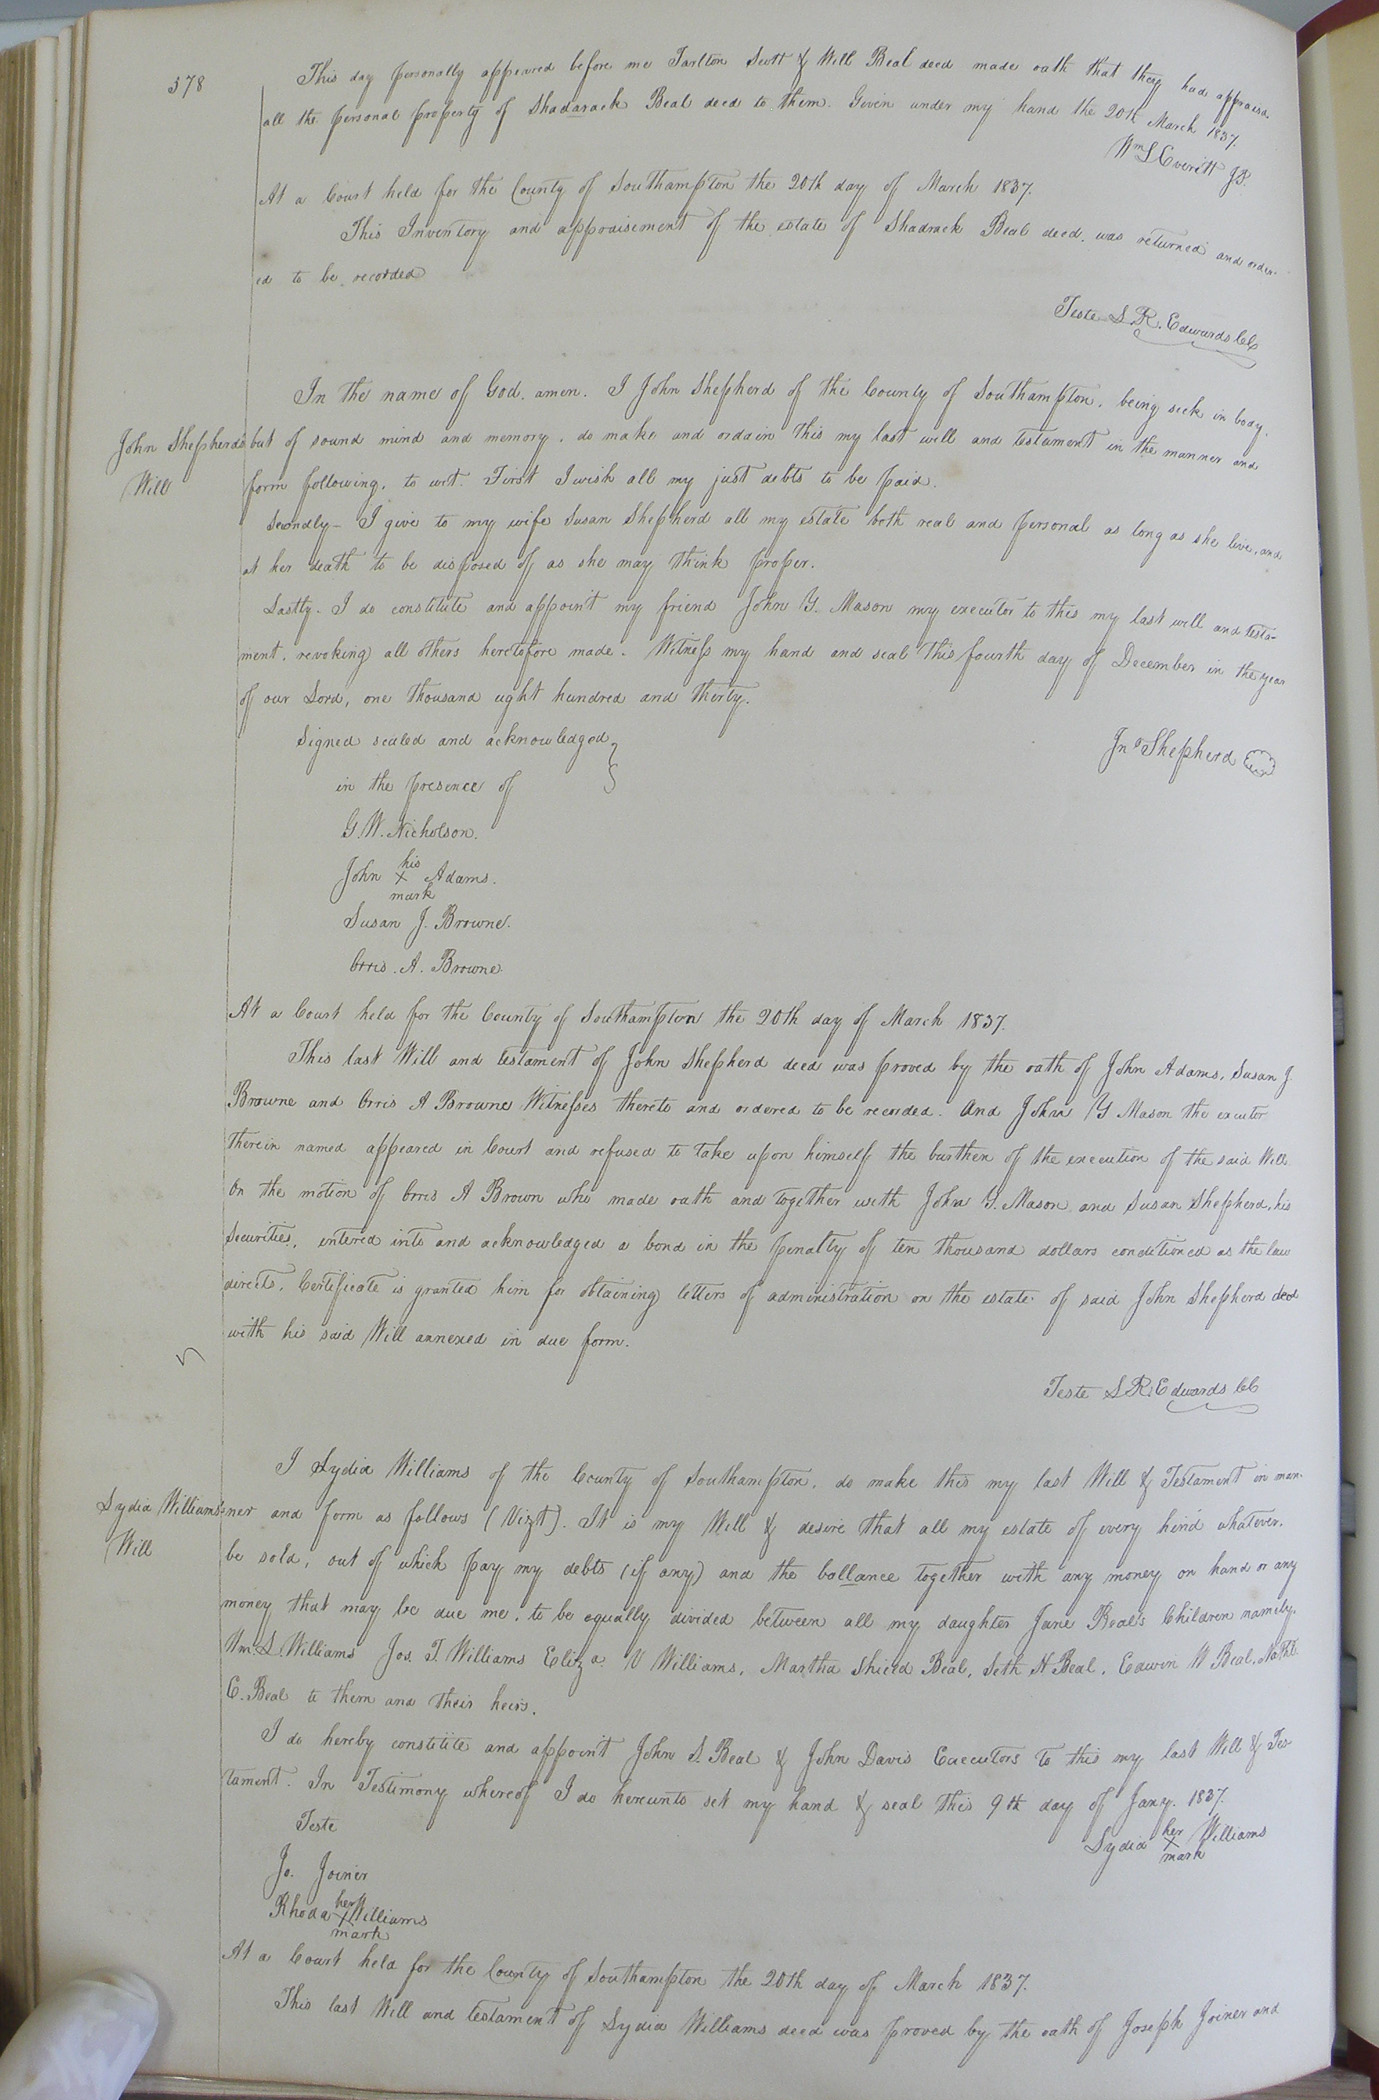 378
This day personally appeared before me Tarlton Scott & Will Beal decd made oath that they had appraisd
all the personal property of Shadarack Beal decd to them. Given under my hand the 20th March 1837.
Wm S Everitt JP.
At a Court held for the County of Southampton the 20th day of March 1837.
This Inventory and appraisement of the estate of Shadrack Beal decd. was returned and order-
ed to be recorded
Teste S. R. Edwards CC
In the name of God, amen. I John Shepherd of the County of Southampton, being sick in body,
John Shepherds but of sound mind and memory, do make and ordain this my last will and testament in the manner and
Will form following, to wit. First I wish all my just debts to be paid.
Secondly - I give to my wife Susan Shepherd all my estate both real and personal as long as she live, and
at her death to be disposed of as she may think proper.
Lastly. I do constitute and appoint my friend John Y. Mason my executor to this my last will and testa-
ment, revoking all others heretofore made. Witness my hand and seal this fourth day of December in the year
of our Lord, one thousand eight hundred and thirty.
Signed sealed and acknowledged
in the presence of
Jno Shepherd
G. W. Nicholson.
John his X mark Adams.
Susan J. Browne.
Orris. A. Browne
At a Court held for the County of Southampton the 20th day of March 1837.
This last Will and testament of John Shepherd decd was proved by the oath of John Adams, Susan J.
Browne and Orris A Browne Witnesses thereto and ordered to be recorded. And John Y Mason the executor
therein named appeared in Court and refused to take upon himself the burthen of the execution of the said Will
On the motion of Orris A Brown who made oath and together with John Y. Mason and Susan Shepherd, his
Securities, entered into and acknowledged a bond in the penalty of ten thousand dollars conditioned as the law
directs. Certificate is granted him for obtaining letters of administration on the estate of said John Shepherd decd
with his said Will annexed in due form.
Teste S R Edwards CC
I Lydia Williams of the County of Southampton, do make this my last Will & Testament in man-
Lydia Williams's ner and form as follows (Vizt). It is my Will & desire that all my estate of every kind whatever.
Will be sold, out of which pay my debts (if any) and the ballance together with any money on hand or any
money that may be due me, to be equally divided between all my daughter Jane Beal's Children namely.
Wm. S. Williams Jos. T. Williams Eliza. V Williams, Martha Shield Beal, Seth H Beal, Edwin W Beal,
E. Beal to them and their heirs.
I do hereby constitute and appoint John S. Beal & John Davis Executors to this my last Will & Tes-
tament. In Testimony whereof I do hereunto set my hand & seal this 9th day of Jany. 1837.
Teste
Lydia her X mark Williams
Jo. Joiner
Rhoda her X mark Williams
At a Court held for the County of Southampton the 20th day of March 1837.
This last Will and testament of Lydia Williams decd was proved by the oath of Joseph Joiner and